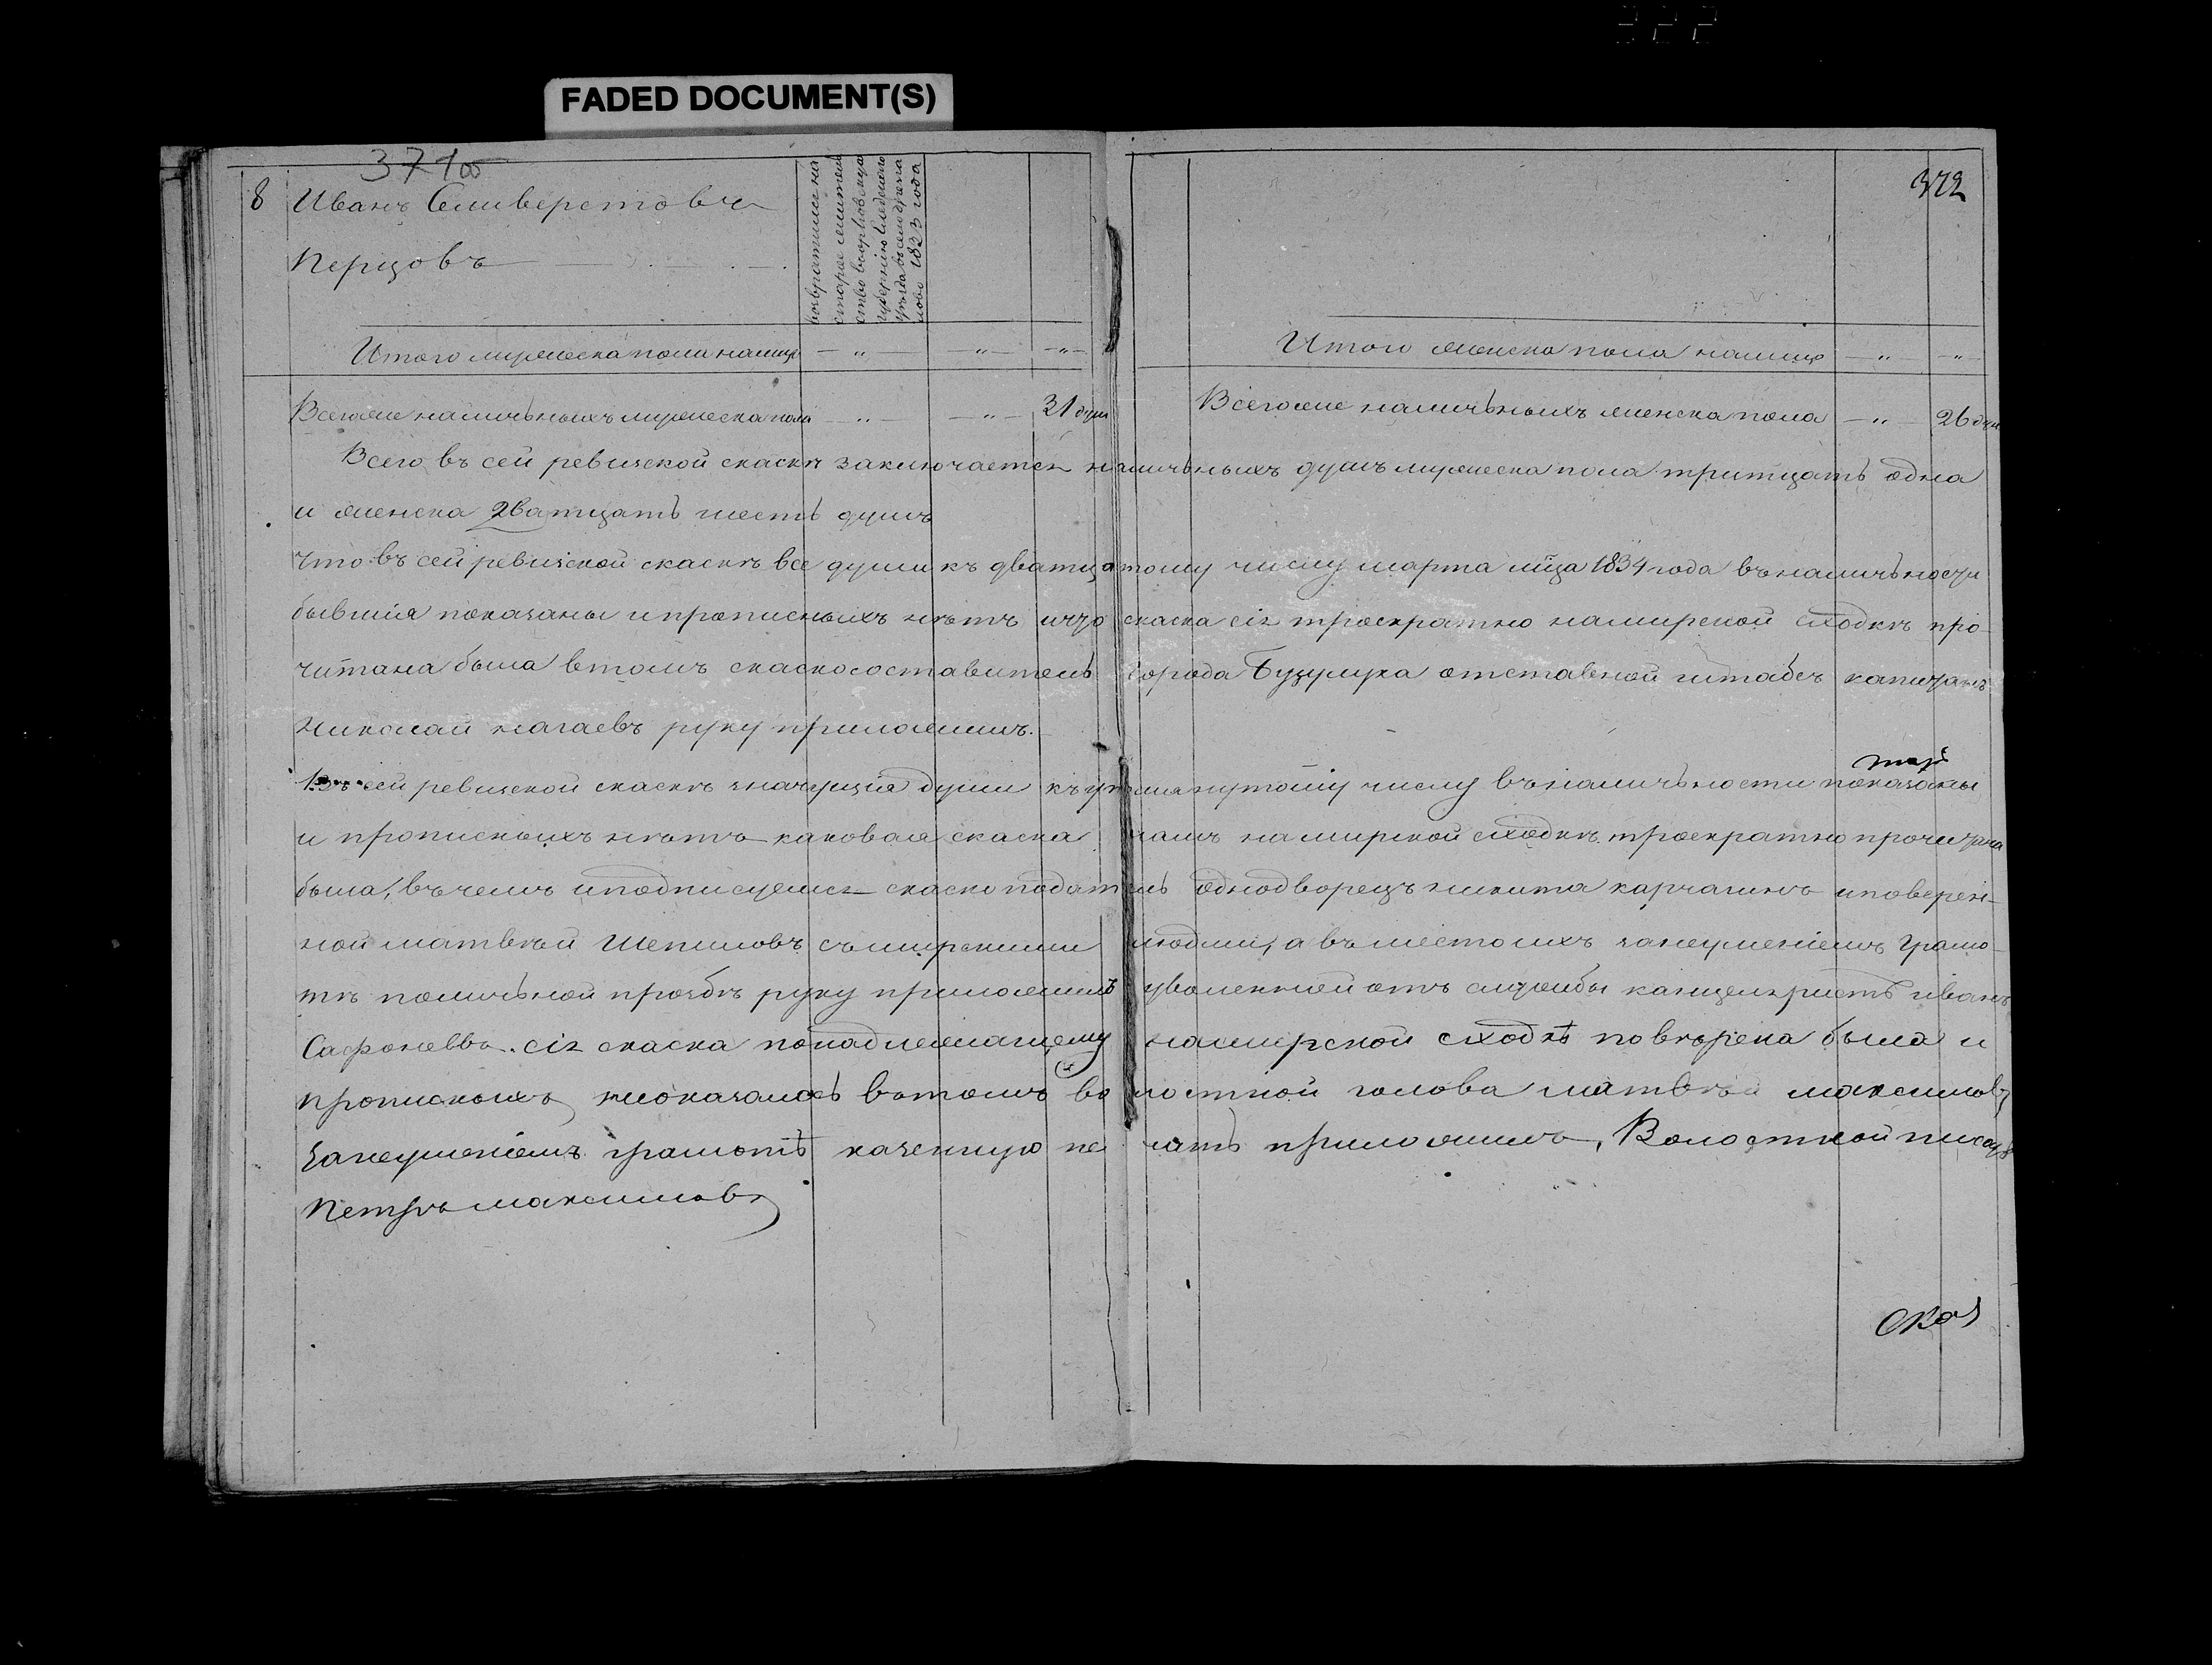 FADED DOCUMENT(S)
371об
322
8 Иванъ Селиверстовъ
Перцовъ
возвратились на
старое жител
ство
губернию
уезда
1823 года
Итого мужеска пола налицо — „ — — „ — — „ —
Итого женска пола налицо — „ — — „ —
Всегоже наличьныхъ мужеска пола — „ — — „ — 31 душ
Всегоже наличьныхъ женска пола — „ — 26 душ
Всего въ сей ревизской скаскѣ заключается наличьныхъ душъ мужеска пола тритцать одна
и женска дватцать шесть душъ
Что въ сей ревизской скаскѣ все души къ дватцатому числу марта мца 1834 года въ наличьности
бывшия показаны и прописныхъ нѣтъ ичто скаска сiя троекратно намирской сходкѣ про
читана была втомъ скаскосоставитель города Бузулука отставной штабсъ капитанъ
Николай нагаевъ руку приложилъ.
Въ сей ревизской скаскѣ значущiя души къ упомянутому числу въ наличьности показаны
и прописныхъ нѣтъ каковая скаска намъ намирской сходкѣ троекратно прочитана
была, въ чемъ иподписуемся скаско податель однодворецъ никита карчагинъ иповерен-
ной матвѣй Шепиловъ съ мирскими людми, а въместо ихъ занеумениемъ грамо-
тѣ поличьной прозбѣ руку приложилъ уволенной отъ службы канцеляристъ иванъ
Сафоневъ. сiя скаска понадлежащему намирской сходкѣ повѣрена была и
прописныхъ неоказалось вътомъ волостной голова матвѣй максимовъ
занеумениемъ грамотѣ казенную печать приложилъ, Волостной писарь
Петръ максимовъ
скаs